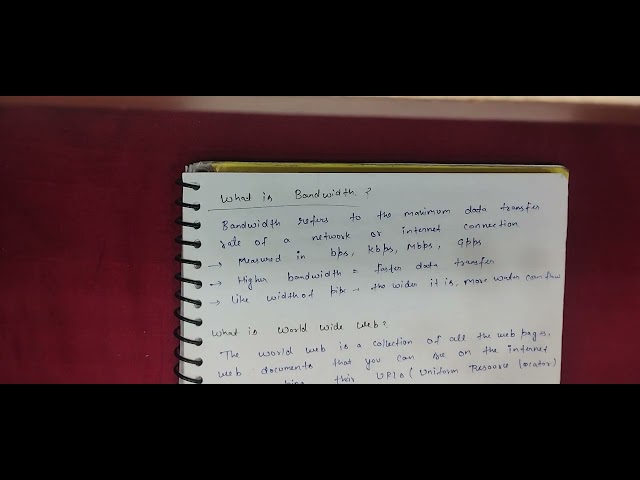 What is Bandwidth ?
Bandwidth refers to the maximum data transfer
rate of a network or internet connection
→ Measured in bps, kbps, Mbps, Gbps
→ Higher bandwidth = faster data transfer
→ Like width of pipe → the wider it is, more water can flow
What is World Wide Web?
The world web is a collection of all the web pages,
web documents that you can see on the internet
their URLs (Uniform Resource locator)